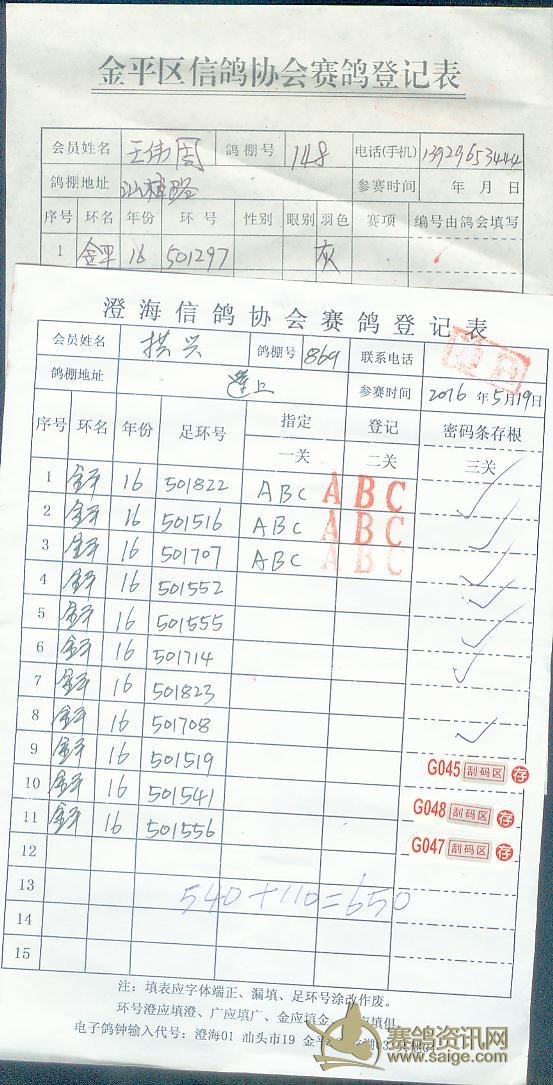 金平区信鸽协会赛鸽登记表
会员姓名 王伟周 鸽棚号 148 电话(手机) 13929653444
鸽棚地址 参赛时间 年 月 日
序号 环名 年份 环号 性别 眼别 羽色 赛项 编号由鸽会填写
1 金平 16 501297 灰
澄海信鸽协会赛鸽登记表
会员姓名 拱兴 鸽棚号 869 联系电话
鸽棚地址 莲上 参赛时间 2016年5月19日
序号 环名 年份 足环号 指定 登记 密码条存根
一关 二关 三关
1 金平 16 501822 ABC A B C
2 金平 16 501516 ABC A B C
3 金平 16 501707 ABC A B C
4 金平 16 501552
5 金平 16 501555
6 金平 16 501714
7 金平 16 501823
8 金平 16 501708
9 金平 16 501519 G045 刮码区 存
10 金平 16 501541 G048 刮码区 存
11 金平 16 501556 G047 刮码区 存
12
13
540+110=650
14
15
注:填表应字体端正、漏填、足环号涂改作废。
环号澄应填澄、广应填广、金应填金、填俱。
电子鸽钟输入代号:澄海01 汕头市19 金平
赛鸽资讯网
www.saige.com